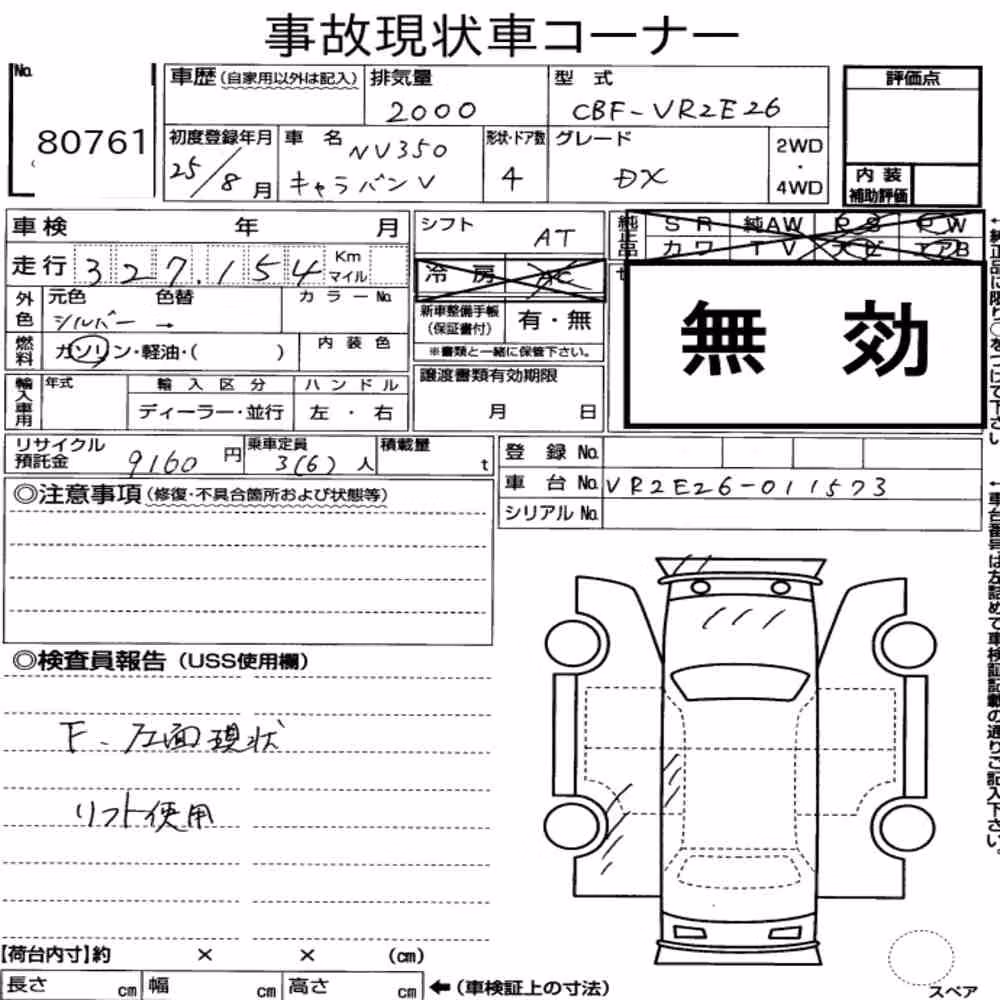 事故現状車コーナー
No.
80761
車歴(自家用以外は記入)
排気量
2000
型式
CBF-VR2E26
評価点
初度登録年月
25/8月
車名
NV350
キャラバンV
形状・ドア数
4
グレード
DX
2WD
・
4WD
内装
補助評価
車検 年 月
走行 327,154 Km
マイル
シフト
AT
冷房 AC
純正品
SR 純AW PS PW
カワ TV ナビ エアB
外色
元色 色替 カラーNo.
シルバー →
燃料
ガソリン・軽油・( )
内装色
新車整備手帳
(保証書付)
有・無
※書類と一緒に保管下さい。
無効
輸入車用
年式
輸入区分
ディーラー・並行
ハンドル
左・右
譲渡書類有効期限
月 日
リサイクル
預託金
9160円
乗車定員
3(6)人
積載量
t
登録No.
車台No. VR2E26-011573
シリアルNo.
◎注意事項(修復・不具合箇所および状態等)
◎検査員報告(USS使用欄)
F、左面現状
リフト使用
【荷台内寸】約 × × (cm)
長さ cm 幅 cm 高さ cm ←(車検証上の寸法)
スペア
←純正品に限り○をつけて下さい
←車台番号は左詰めで車検証記載の通りご記入下さい。